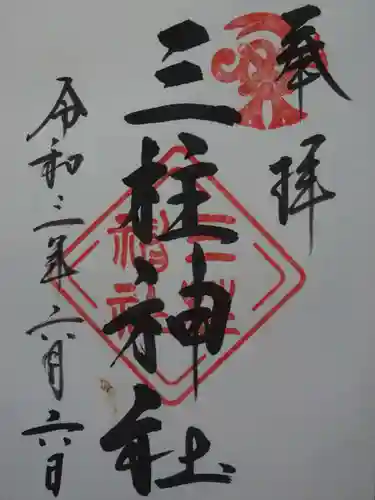 奉拝
三柱神社
三柱神社
令和三年六月六日